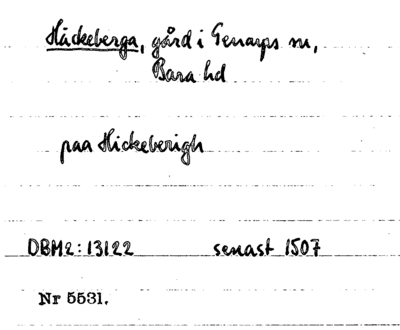 Häckeberga, gård i Genarps sn,
Bara hd
paa Hickeberigh
DBM2:13122 senast 1507
Nr 5531.